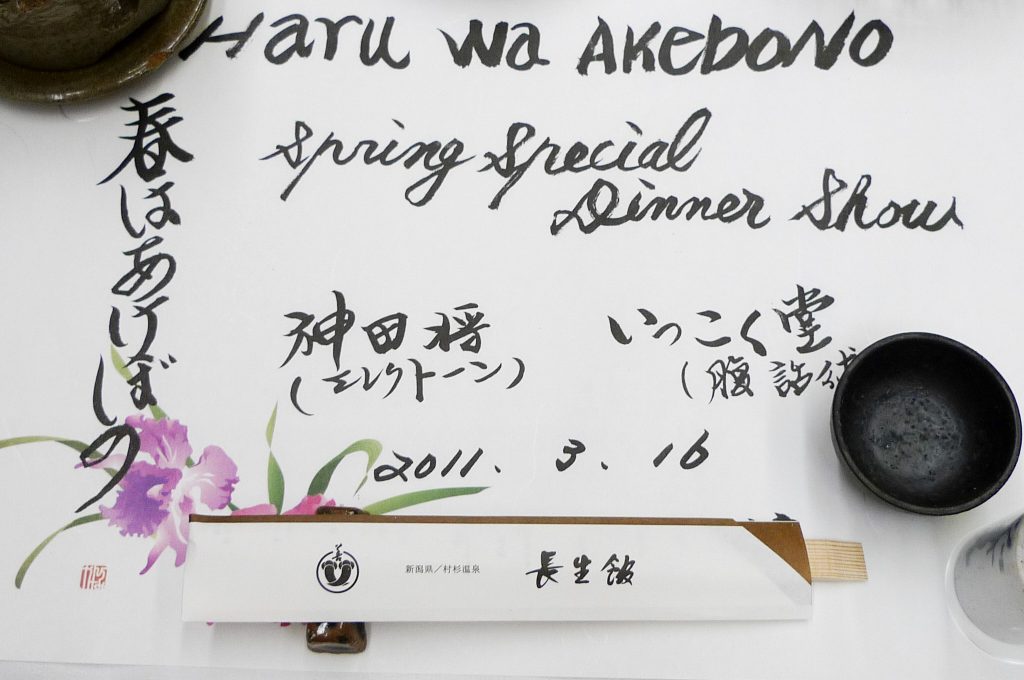 Haru wa AKEBONO
春はあけぼの
Spring Special
Dinner Show
神田将
(エレクトーン)
いっこく堂
(腹話
2011. 3. 16
新潟県／村杉温泉
長生館